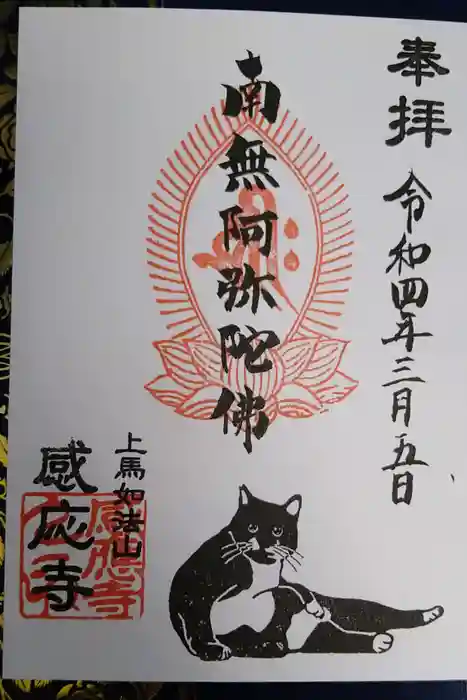 奉拝
令和四年三月五日
南無阿弥陀佛
上馬如法山
感応寺
感應寺